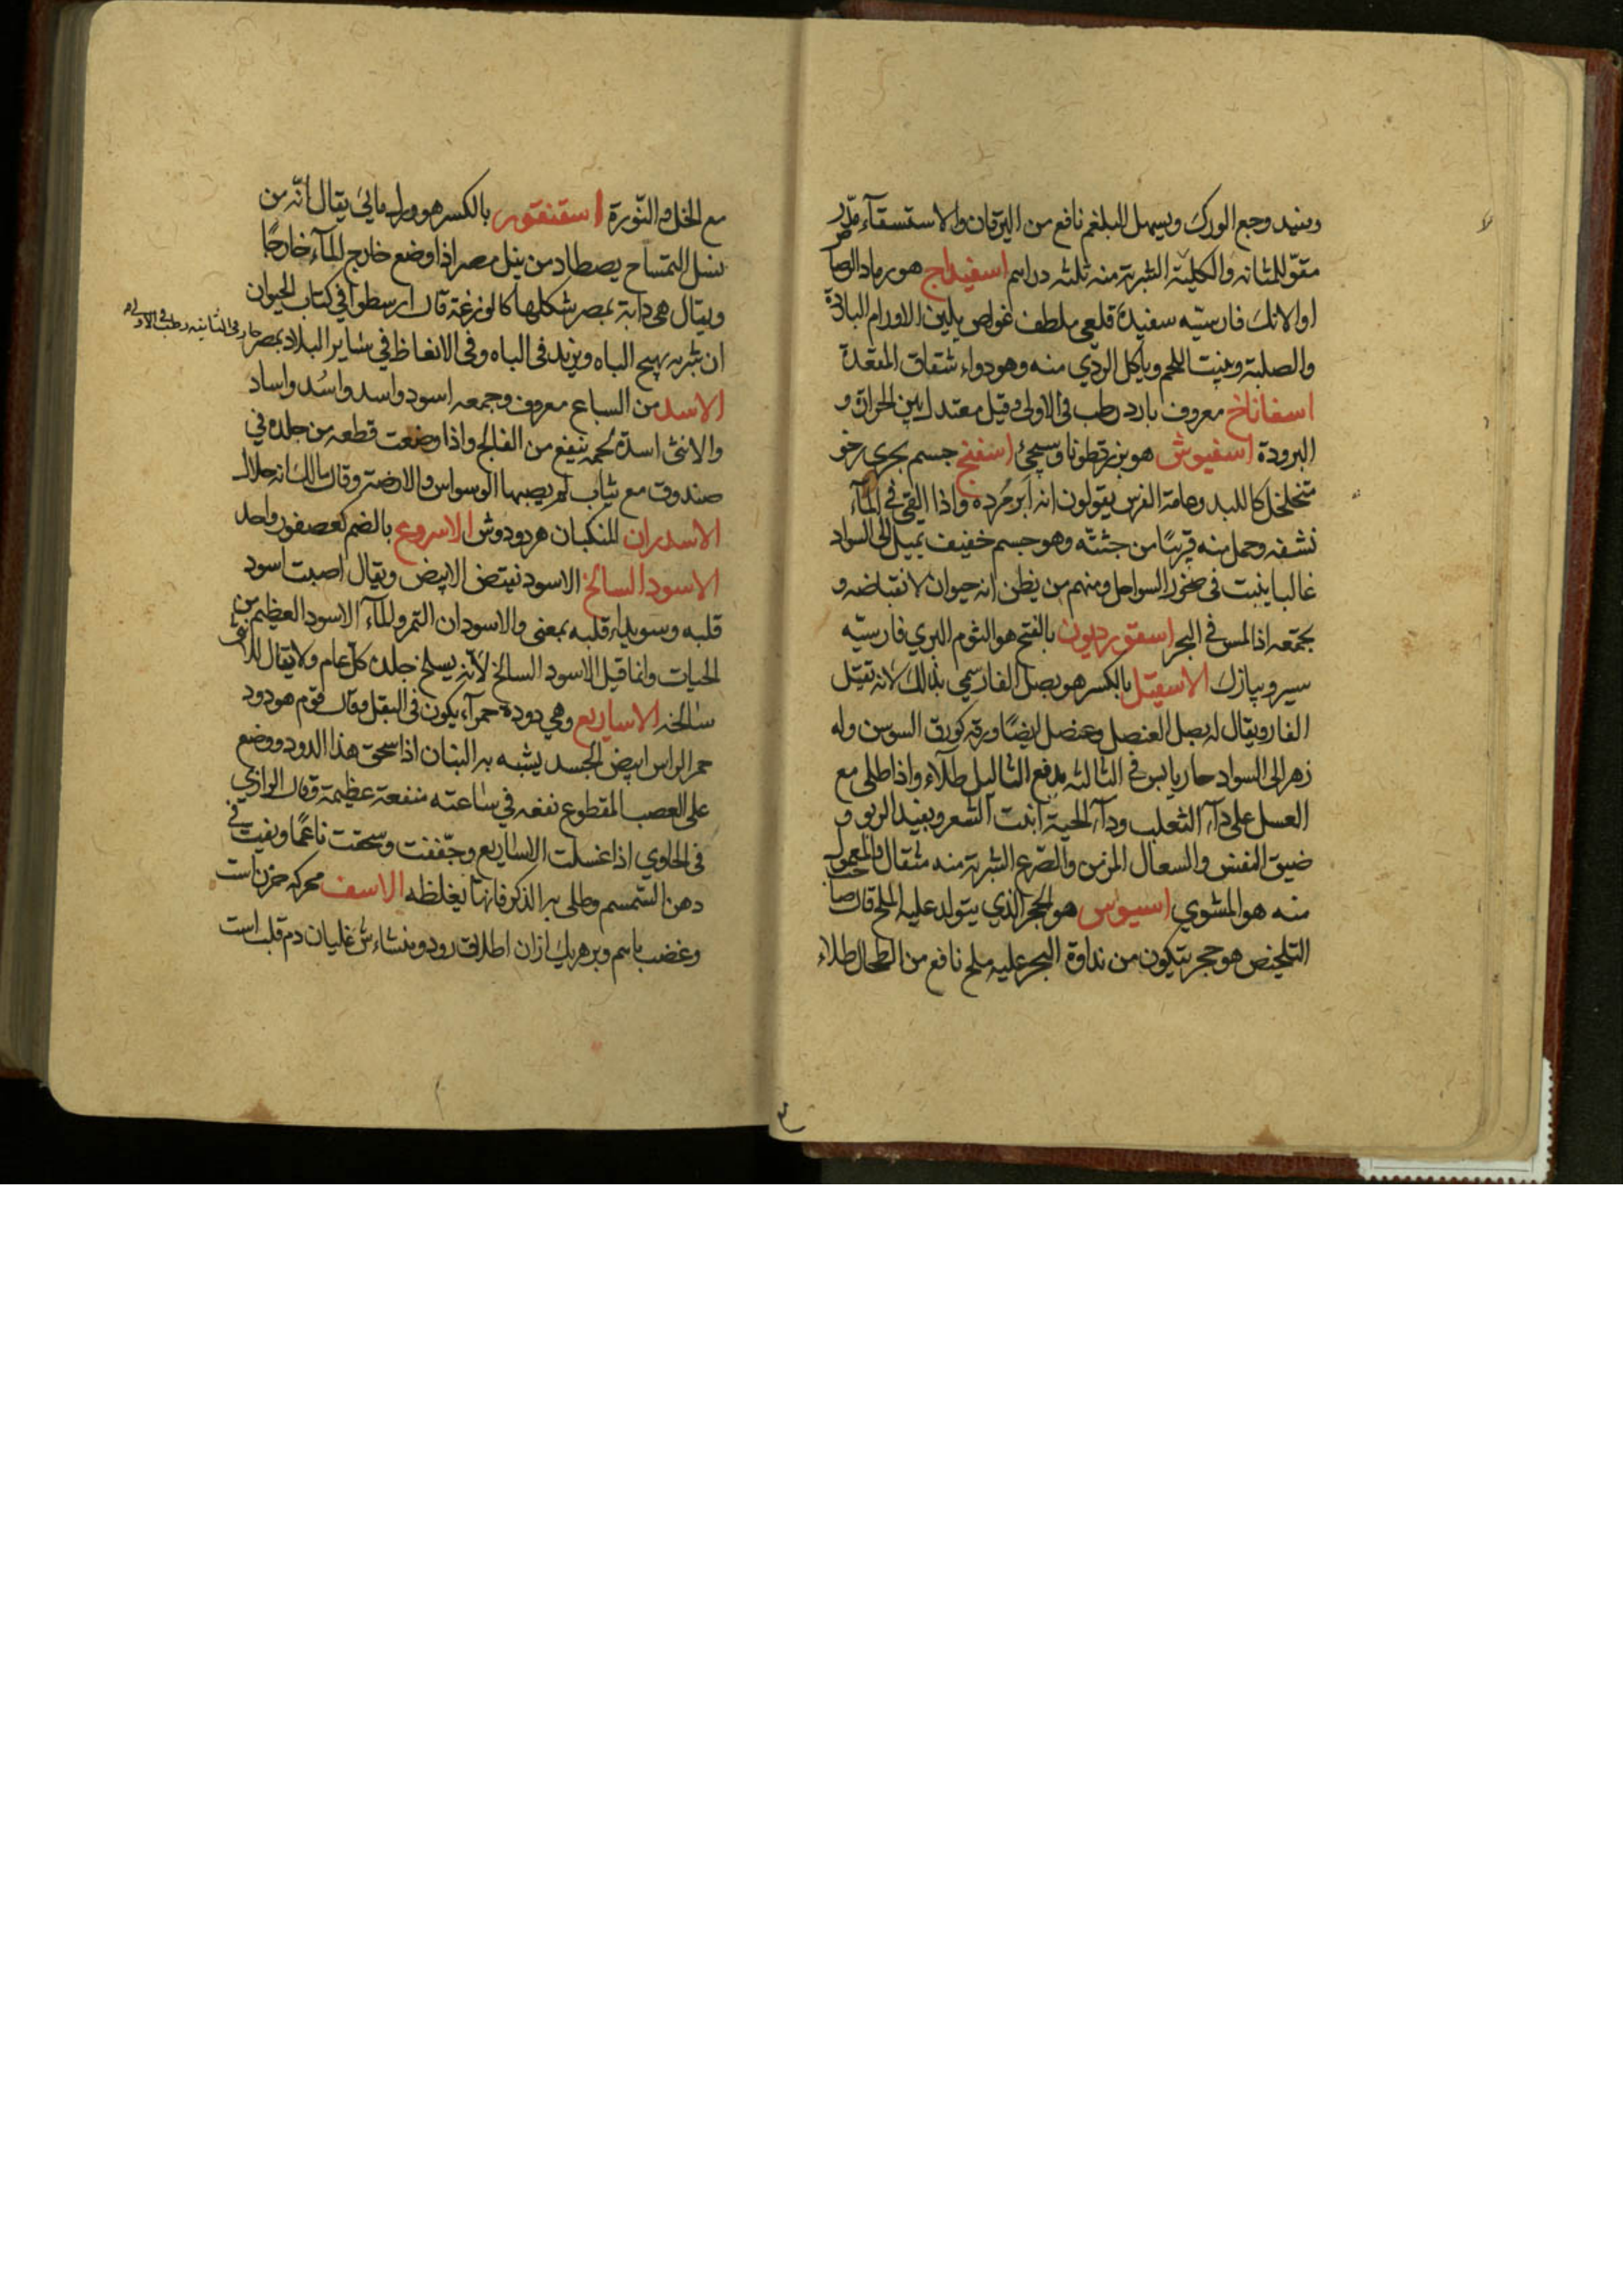 ويفيد وجع الورك ويسهل البلغم نافع من اليرقان والاستسقآء مدّر
مقوّ للمثانه والكلية الشربة منه ثلثه دراهم اسفيداج هو رماد الرصاص
او الانك فارسيّه سفيدهٔ قلعي ملطف غواص يلين الاورام الباردة
والصلبة وينبت اللحم وياكل الردي منه وهو دواء شقاق المقعدة
اسفاناخ معروف بارد رطب في الاولى وقيل معتدل بين الحرارة و
البرودة اسفيوش هو بزر قطونا وسيجئ اسفنج جسم بحري رخو
متخلخل كاللبد وعامة الفرس يقولون انه ابر مُرده واذا القي في المآء
نشفه وحمل منه قريبًا من جثته وهو جسم خفيف يميل الى السواد
غالبا ينبت في صخور السواحل ومنهم من يظن انه حيوان لانقباضه و
تجمعه اذا لمس في البحر اسقورديون بالفتح هو الثوم البري فارسيّه
سير وپيازك الاسقيل بالكسر هو بصل الفار سمي بذلك لانه تقتل
الفار ويقال له بصل العنصل وعنصل ايضًا ورقه كورق السوسن وله
زهر الى السواد حار يابس في الثالثه يدفع الثاليل طلآء واذا طلي مع
العسل على دآء الثعلب ودآء الحية انبت الشعر ويفيد الربو و
ضيق النفس والسعال المزمن والصرع الشربة منه مثقال والمعمول
منه هو المشوي اسيوس هو الحجر الذي يتولد عليه الملح قال صاحب
التلخيص هو حجر يتكون من نداوة البحر عليه ملح نافع من الطحال طلاء
مع الخل والنّورة اسقنقور بالكسر هو ورل مائي يقال انّه من
نسل التمساح يصطاد من نيل مصر اذا وضع خارج المآء خارجًا
ويقال هي دابة بمصر شكلها كالوزغة قال ارسطو في كتاب الحيوان
ان شربه يهيج الباه ويزيد في الباه وفي الانعاظ في ساير البلاد بمصر
حار في الثانيه رطب في الاولى
الاسد من السباع معروف وجمعه اسود واسد واسُد واساد
والانثى اسدة لحمه ينفع من الفالج واذا وضعت قطعه من جلده في
صندوق مع ثياب لم يصبها السوس والارضة وقال مالك انه حلال
الاسدران المنكبان هر دو دوش الاسروع بالضم كعصفور واحد
الاسود السالخ الاسود نقيض الابيض ويقال اصبت اسود
قلبه وسويداء قلبه بمعنى والاسودان التمر والمآء الاسود العظيم من
الحيات وانما قيل الاسود السالخ لانّه يسلخ جلده كلّ عام ولا يقال للانثى
سالخه الاساريع وهي دودة حمرآء يكون في البقل وقال قوم هو دود
حمر الراس ابيض الجسد يشبه به البنان اذا سحق هذا الدود ووضع
على العصب المقطوع نفعه في ساعته منفعة عظيمة وقال الرازي
في الحاوي اذا غسلت الاساريع وجّففت وسحقت ناعمًا وديفت في
دهن السّمسم وطلي به الذكر فانها يغلظه الاسف محركه حزن است
وغضب باسم وبر هريك ازان اطلاق رود ومنشاءش غليان دم قلب است